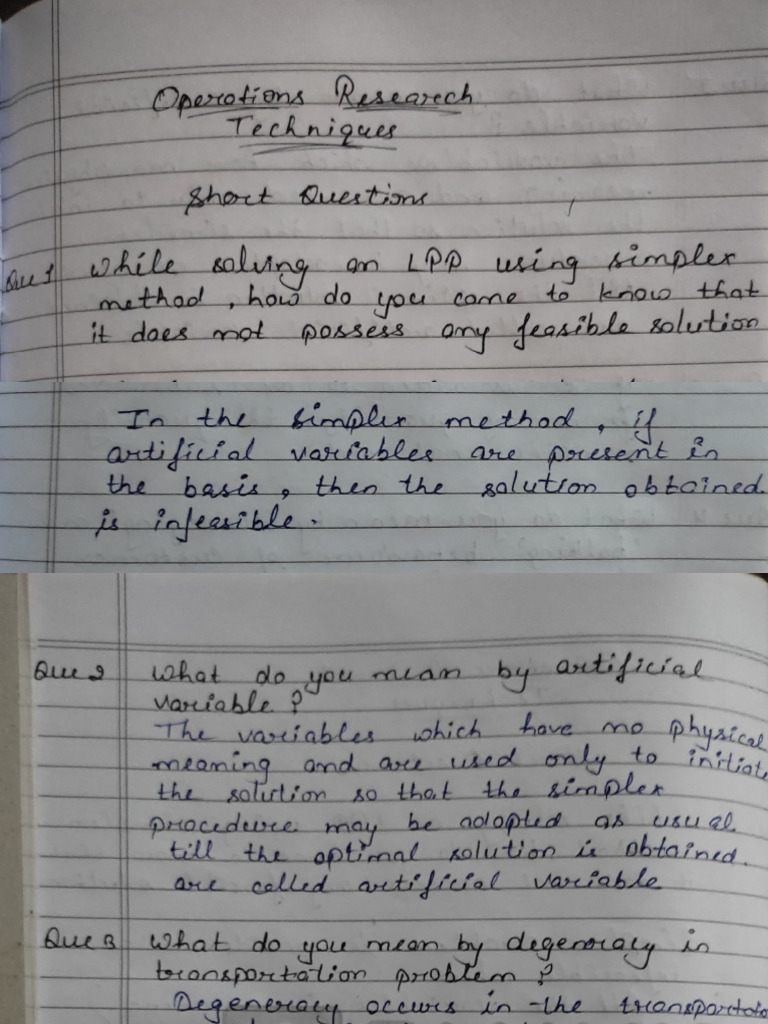 Operations Research
Techniques
Short Questions
Que 1 While solving an LPP using simplex
method, how do you come to know that
it does not possess any feasible solution
In the simplex method, if
artificial variables are present in
the basis, then the solution obtained.
is infeasible.
Que 2 What do you mean by artificial
variable?
The variables which have no physical
meaning and are used only to initiate
the solution so that the simplex
procedure may be adopted as usual.
till the optimal solution is obtained.
are called artificial variable
Que 3 What do you mean by degeneracy in
transportation problem?
Degeneracy occurs in the